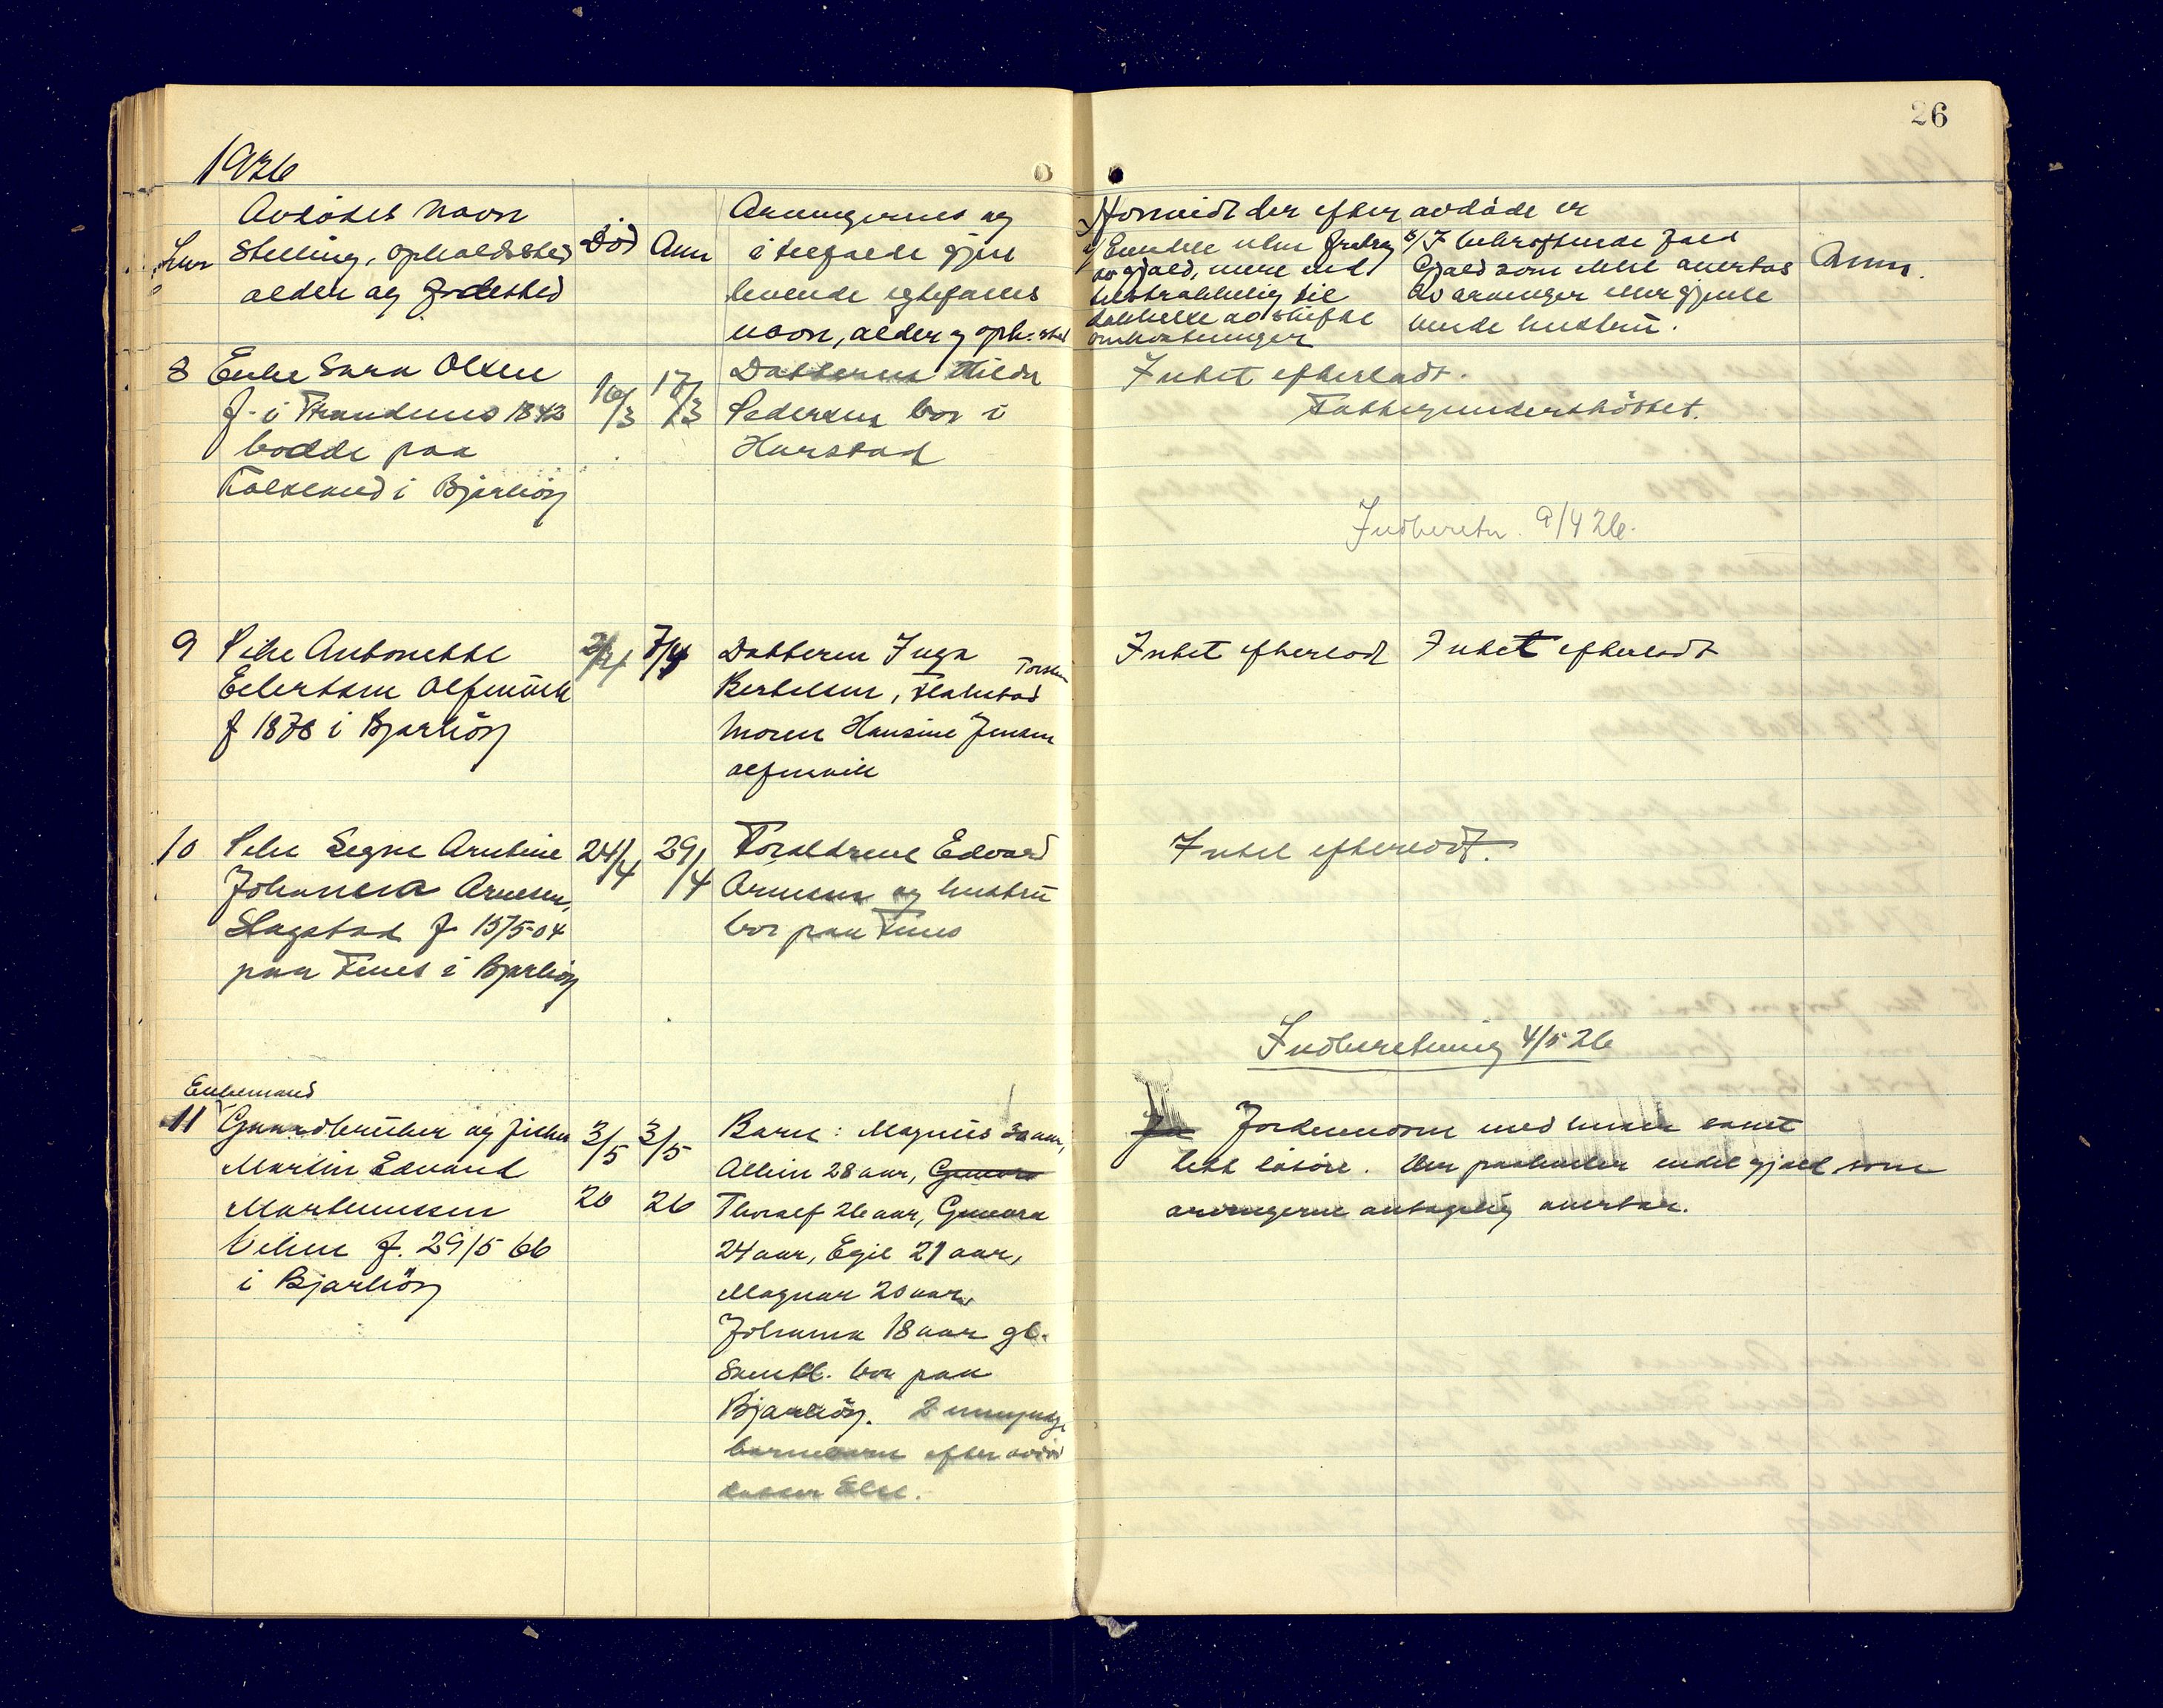 26
1926
Lnr
Avdødes navn
Stilling, opholdssted
alder og fødested
Død
Anm
Arvingernes og
i tilfælde gjen
levende egtefælles
navn, alder og oph.sted
Hvorvidt der efter avdøde er
a/ Eiendele uten fradrag
av gjæld, mere end
tilstrækkelig til
dækkelse av skifte
omkostninger
b/ I bekræftende fald
Gjæld som ikke overtas
av arvinger eller gjenle
vende hustru.
Anm.
8 Enke Sara Olsen
f. i Trondenes 1843
bodde paa
i Bjarkøy
16/3
17/3
Datteren Hilda
Pedersen bor i
Harstad
Intet efterladt.
Fattigunderstøttet.
Indberetn. 9/4 26.
9 Pike Antonette
Eilertsen Alfsnuik
f 1878 i Bjarkøy
7/4
Datteren Inga
Bertelsen,
Moren Hansine Jensen
Intet efterladt
Intet efterladt
10 Pike Signe Arntine
Johansen Arnesen,
Slagstad f. 15/5-04
paa Fines i Bjarkøy
24/4
29/4
Forældrene Edvard
Arnesen og hustru
bor paa Fines
Intet efterladt.
Indberetning 4/5 26
Enkemand
11 Gaardbruker og fisker
Martin Edvard
Martinussen
f. 29/5 66
i Bjarkøy
3/5
26
3/5
26
Barn: Magnus 30 aar,
28 aar, Gunvor
Thoralf 26 aar, Gunvora
24 aar, Egil 21 aar,
Magnar 20 aar,
Johanna 18 aar gl.
Samtl. bor paa
Bjarkøy. 2 umyndige
barnebarn efter avdød
datter Else.
Ja Jordeiendom med huser samt
litt løsøre. Der paahviler endel gjæld som
arvingerne antagelig overtar.